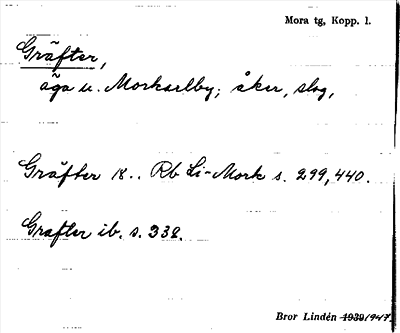 Mora tg, Kopp. l.
Gräfter,
äga u. Morkarlby; åker, slog,
Gräfter K.. Rb Li-Mork s. 299,440.
Grafter ib. s. 338.
Bror Lindén 1939/1947